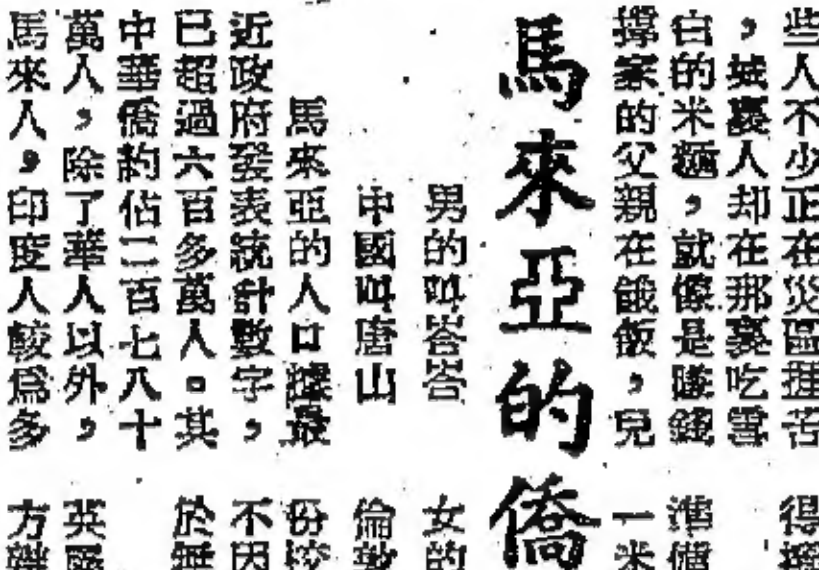 些人不少正在災區捱苦
，城裏人却在那裏吃雪
白的米麵，就像是賺錢
撐家的父親在餓飯，兒
馬來亞的僑
男的叫峇峇
中國叫唐山
馬來亞的人口據最
近政府發表統計數字，
已超過六百多萬人。其
中華僑約佔二百七八十
萬人，除了華人以外，
馬來人，印度人較爲多
得
一米
女的
倫
不因
於無
英
方